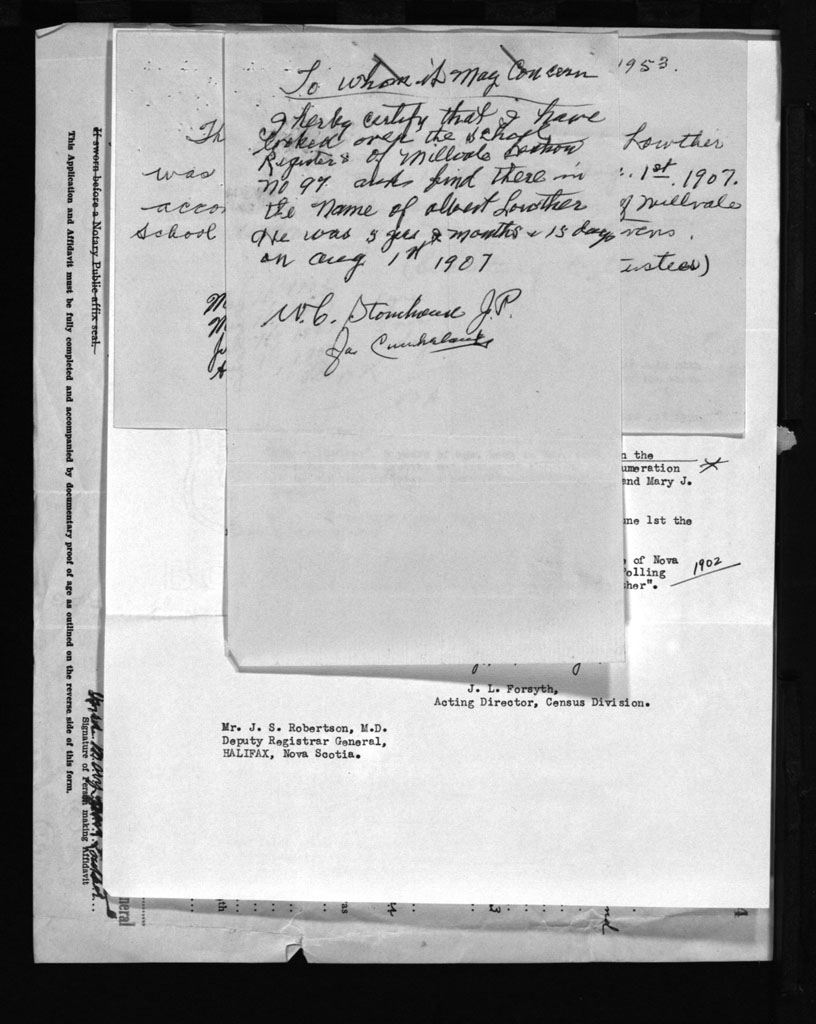 To whom it May Concern
I herby certify that I have
looked over the School
Registers of Millvale
No 97 and find there in
the Name of albert Lowther
He was 5 yrs 2 months & 15 days
on Aug 1st 1907
W. C. Stonehouse J.P.
1953.
Th
Lowther
was
1st. 1907.
acco
of Millvale
School
vens.
ustees)
n the
umeration
and Mary J.
une 1st the
of Nova
olling
sher".
1902
J. L. Forsyth,
Acting Director, Census Division.
Mr. J. S. Robertson, M.D.
Deputy Registrar General,
HALIFAX, Nova Scotia.
If sworn before a Notary Public affix seal.
This Application and Affidavit must be fully completed and accompanied by documentary proof of age as outlined on the reverse side of this form.
Signature of Person making Affidavit
neral